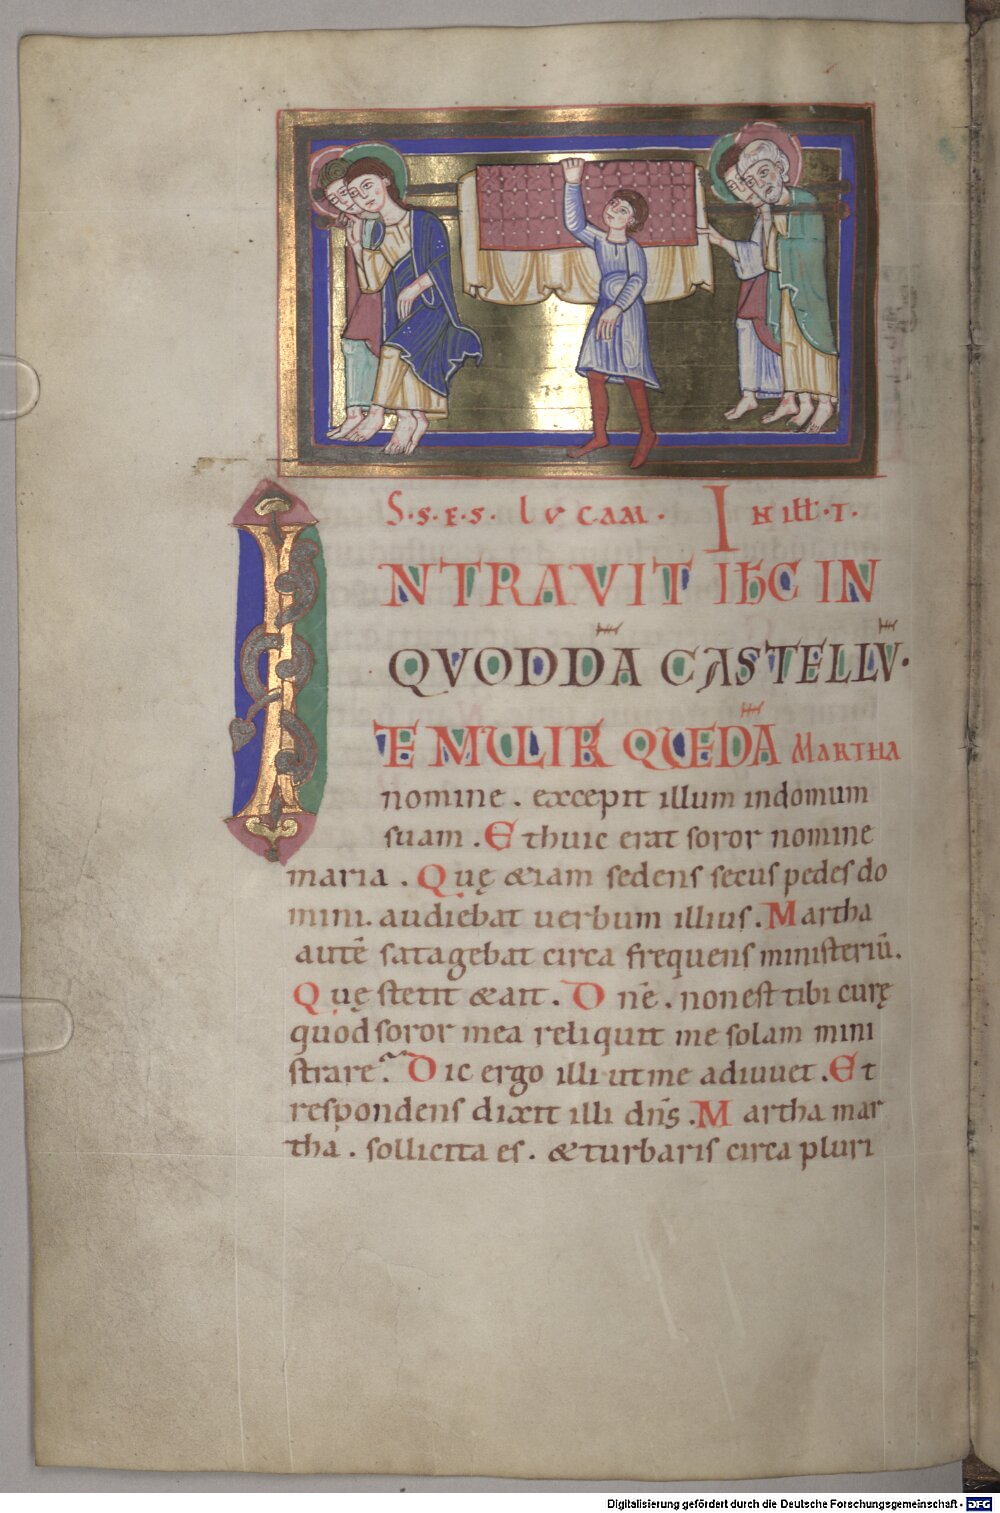 S·S·E·S· LVCAM· IN ILL̅·T·
NTRAVIT IH̅C IN
QVODDĀ CASTELLV̄·
ET MULIER QUEDĀ MARTHA
nomine . excepit illum indomum
suam . Et huic erat soror nomine
maria . Quę &iam sedens secus pedes do
mini. audiebat uerbum illius. Martha
autē satagebat circa frequens ministeriū.
Quę stetit & ait. Dn̄e . non est tibi curę
quod soror mea reliquit me solam mini
strare? Dic ergo illi ut me adiuuet . Et
respondens dixit illi dn̄s . Martha mar
tha . sollicita es . & turbaris circa pluri
Digitalisierung gefördert durch die Deutsche Forschungsgemeinschaft - DFG